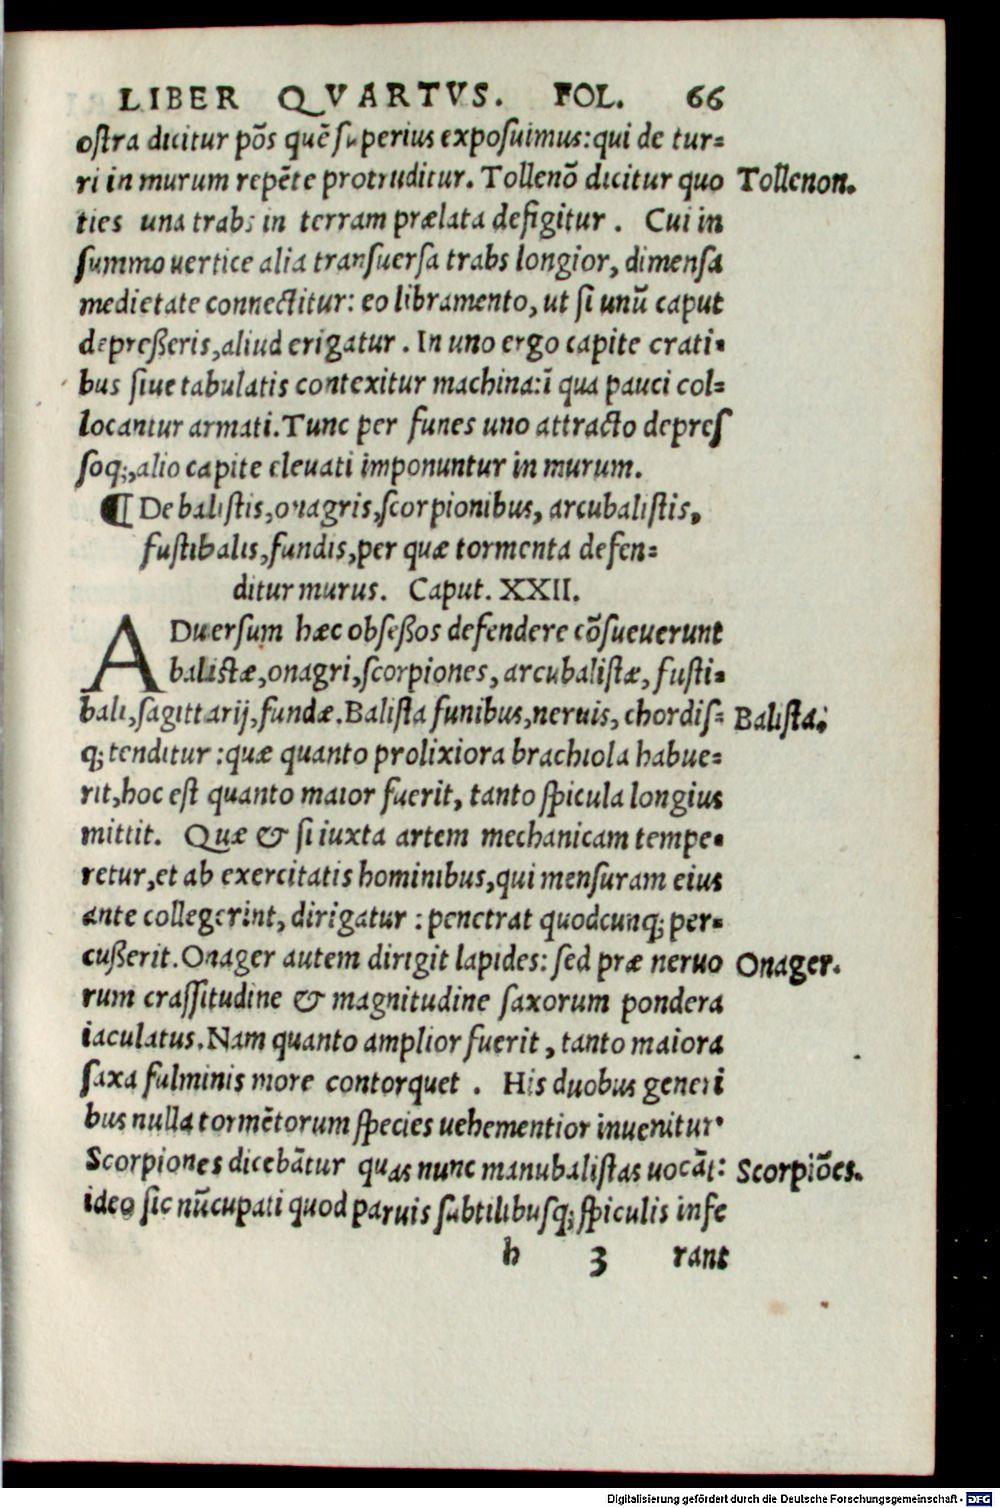 LIBER QVARTVS. FOL. 66
oſtra dicitur põs quẽ ſuperius expoſuimus: qui de tur=
ri in murum repẽte protruditur. Tollenõ dicitur quo Tollenon.
ties una trabs in terram prælata defigitur. Cui in
ſummo uertice alia tranſuerſa trabs longior, dimenſa
medietate connectitur: eo libramento, ut ſi unũ caput
depreßeris, aliud erigatur. In uno ergo capite crati=
bus ſiue tabulatis contexitur machina: ĩ qua pauci col=
locantur armati. Tunc per funes uno attracto depreſ
ſoq;, alio capite eleuati imponuntur in murum.
¶ De baliſtis, onagris, ſcorpionibus, arcubaliſtis,
fuſtibalis, fundis, per quæ tormenta defen=
ditur murus. Caput. XXII.
ADuerſum hæc obſeßos defendere cõſueuerunt
baliſtæ, onagri, ſcorpiones, arcubaliſtæ, fuſti=
bali, ſagittarij, fundæ. Baliſta funibus, neruis, chordiſ= Baliſta.
q; tenditur: quæ quanto prolixiora brachiola habue=
rit, hoc eſt quanto maior fuerit, tanto ſpicula longius
mittit. Quæ & ſi iuxta artem mechanicam tempe=
retur, et ab exercitatis hominibus, qui menſuram eius
ante collegerint, dirigatur: penetrat quodcunq; per=
cußerit. Onager autem dirigit lapides: ſed præ neruo Onager.
rum craſſitudine & magnitudine ſaxorum pondera
iaculatus. Nam quanto amplior fuerit, tanto maiora
ſaxa fulminis more contorquet. His duobus generi
bus nulla tormẽtorum ſpecies uehementior inuenitur.
Scorpiones dicebãtur quas nunc manubaliſtas uocãt: Scorpiões.
ideo ſic nũcupati quod paruis ſubtilibuſq; ſpiculis infe
h 3 rant
Digitalisierung gefördert durch die Deutsche Forschungsgemeinschaft - DFG